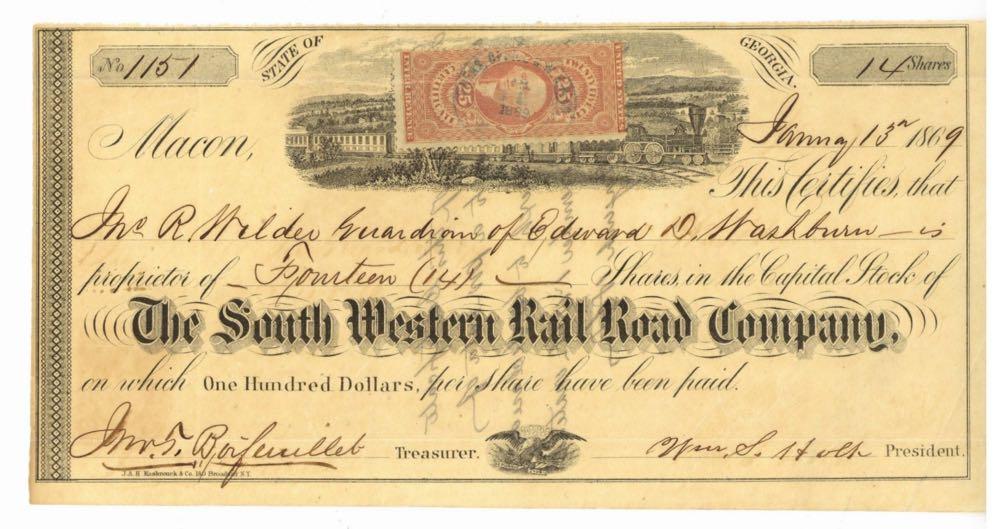 No 1151
STATE OF
GEORGIA.
14 Shares
Macon,
January 13th 1869
This Certifies, that
Jno R. Wilder Guardian of Edward D. Washburn — is
proprietor of Fourteen (14) Shares, in the Capital Stock of
The South Western Rail Road Company,
on which One Hundred Dollars, per share have been paid.
Jno. T. Boifeuillet Treasurer.
Wm. S. Holt President.
J.A.H. Hasbrouck & Co. 180 Broadway N.Y.